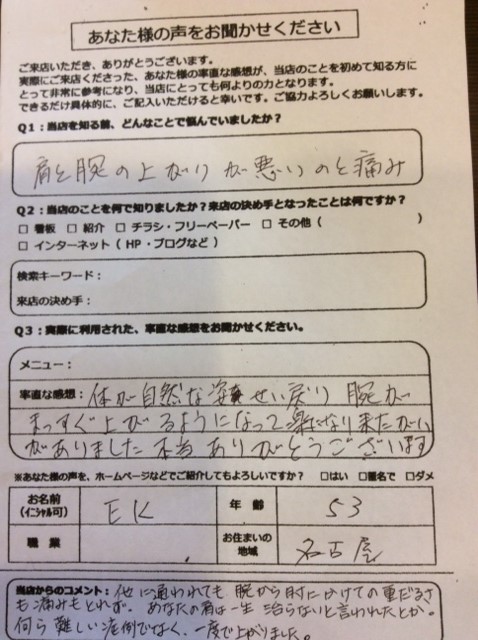 あなた様の声をお聞かせください
ご来店いただき、ありがとうございます。
実際にご来店くださった、あなた様の率直な感想が、当店のことを初めて知る方に
とって非常に参考になり、当店にとっても何よりの力となります。
できるだけ具体的に、ご記入いただけると幸いです。ご協力よろしくお願いします。
Q1：当店を知る前、どんなことで悩んでいましたか？
肩と腕の上がりが悪いのと痛み
Q2：当店のことを何で知りましたか？来店の決め手となったことは何ですか？
□ 看板 □ 紹介 □ チラシ・フリーペーパー □ その他（ ）
□ インターネット（ HP・ブログなど ）
検索キーワード：
来店の決め手：
Q3：実際に利用された、率直な感想をお聞かせください。
メニュー：
率直な感想：体が自然な姿せい戻り 腕が
まっすぐ上がるようになって楽になり来たかい
がありました本当ありがとうございます
※あなた様の声を、ホームページなどでご紹介してもよろしいですか？ □はい □匿名で □ダメ
お名前 EK 年 齢 53
（イニシャル可）
職 業 お住まいの地域 名古屋
当店からのコメント：他に通われても 腕から肘にかけての重だるさ
も痛みもとれず。あなたの肩は一生 治らないと言われたとか。
何ら難しい症例でなく、一度で上がりました。